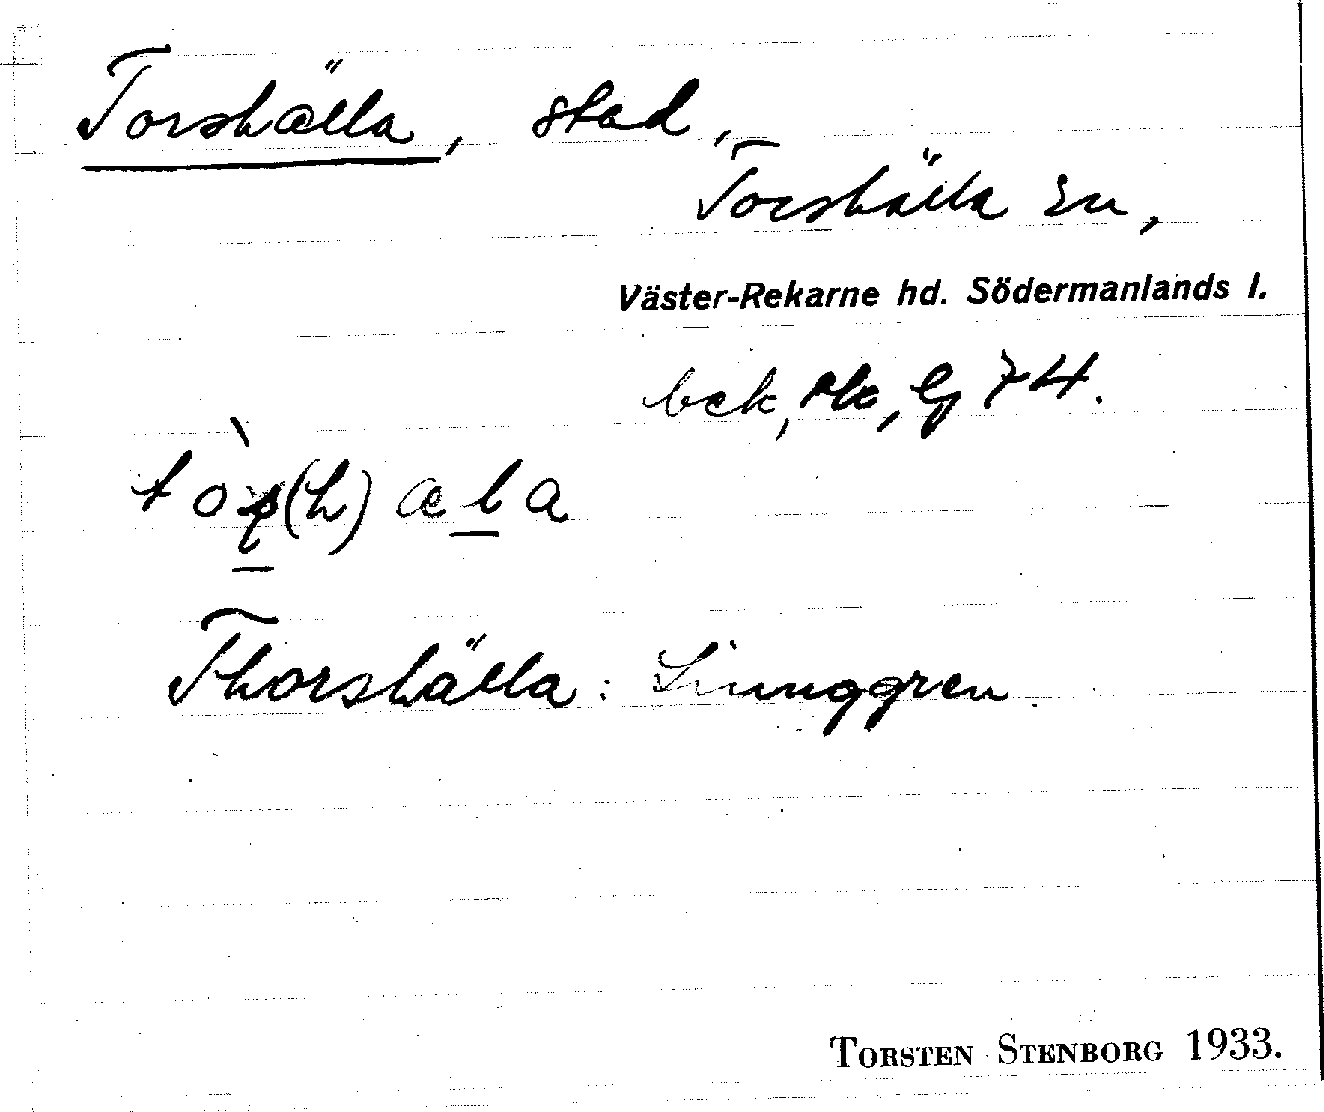 Torshälla, stad,
Torshälla sn,
Väster-Rekarne hd. Södermanlands l.
bek, rk, Gg 74.
Thorshälla: Liunggren
TORSTEN STENBORG 1933.